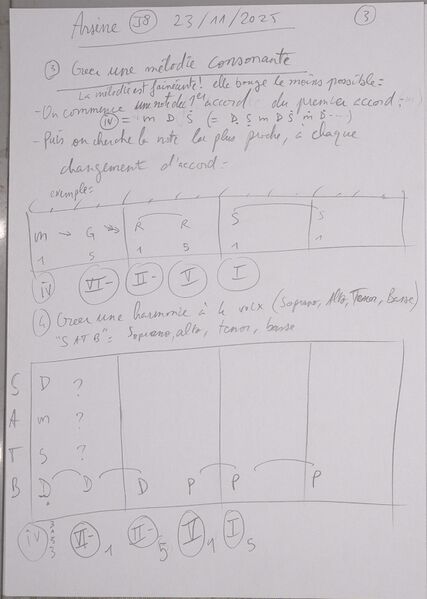 Arsène J8 23/11/2025 3
3 Créer une mélodie consonante
La mélodie est fainéante! elle bouge le moins possible =
- On commence une note de 1er accord du premier accord :
IV = m D S (= D S m D S m D ...)
- Puis on cherche la note la plus proche, à chaque
changement d'accord =
exemple =
m → G → R R S S
1 5 1 5 1 1
IV VI- II- V I
4 Créer une harmonie à 4 voix (Soprano, Alto, Tenor, Basse)
"SATB" = Soprano, alto, tenor, basse
S D ?
A m ?
T S ?
B D D D P P P
IV VI- 1 II- 5 V 1 I 5